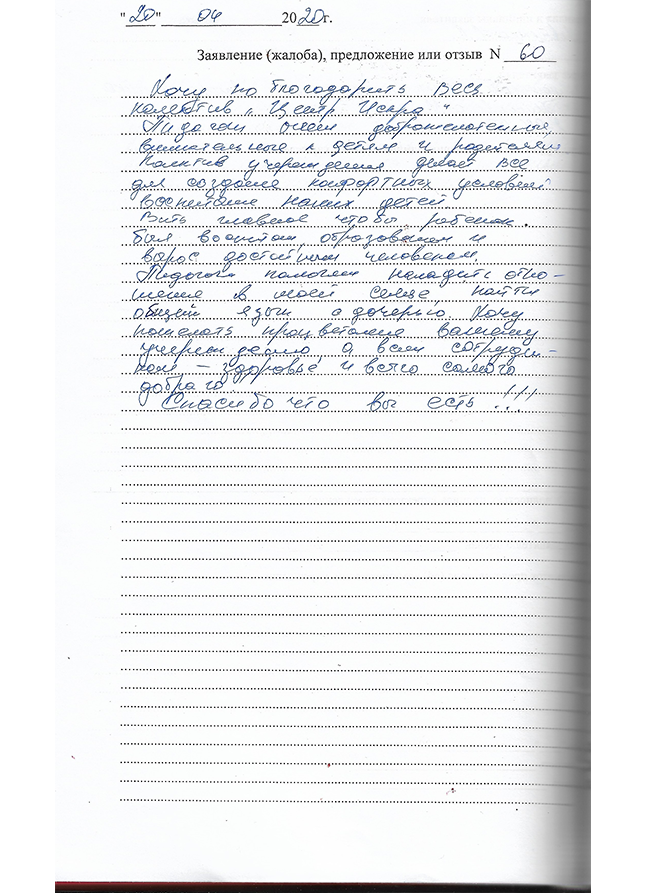 "20" 04 2020г.
Заявление (жалоба), предложение или отзыв N 60
Хочу по благодарить весь
коллектив „Центр Искра"
Пидагоги очень доброжелательные,
внимательные к детям и родителям
Колектив учереждения делает все
для создания комфортных условий
воспитание наших детей
Вить главное чтобы ребенок.
был воспитан, образованн и
вырос достойным человеком.
Педогоги помогли наладить отно-
шения в моей семье, найти
общий язык с дочерью. Хочу
пожелать процветания вашему
учереждению, а всем сотрудн-
кам – здоровье, и всего самого
доброго
Спасибо что вы есть !!!